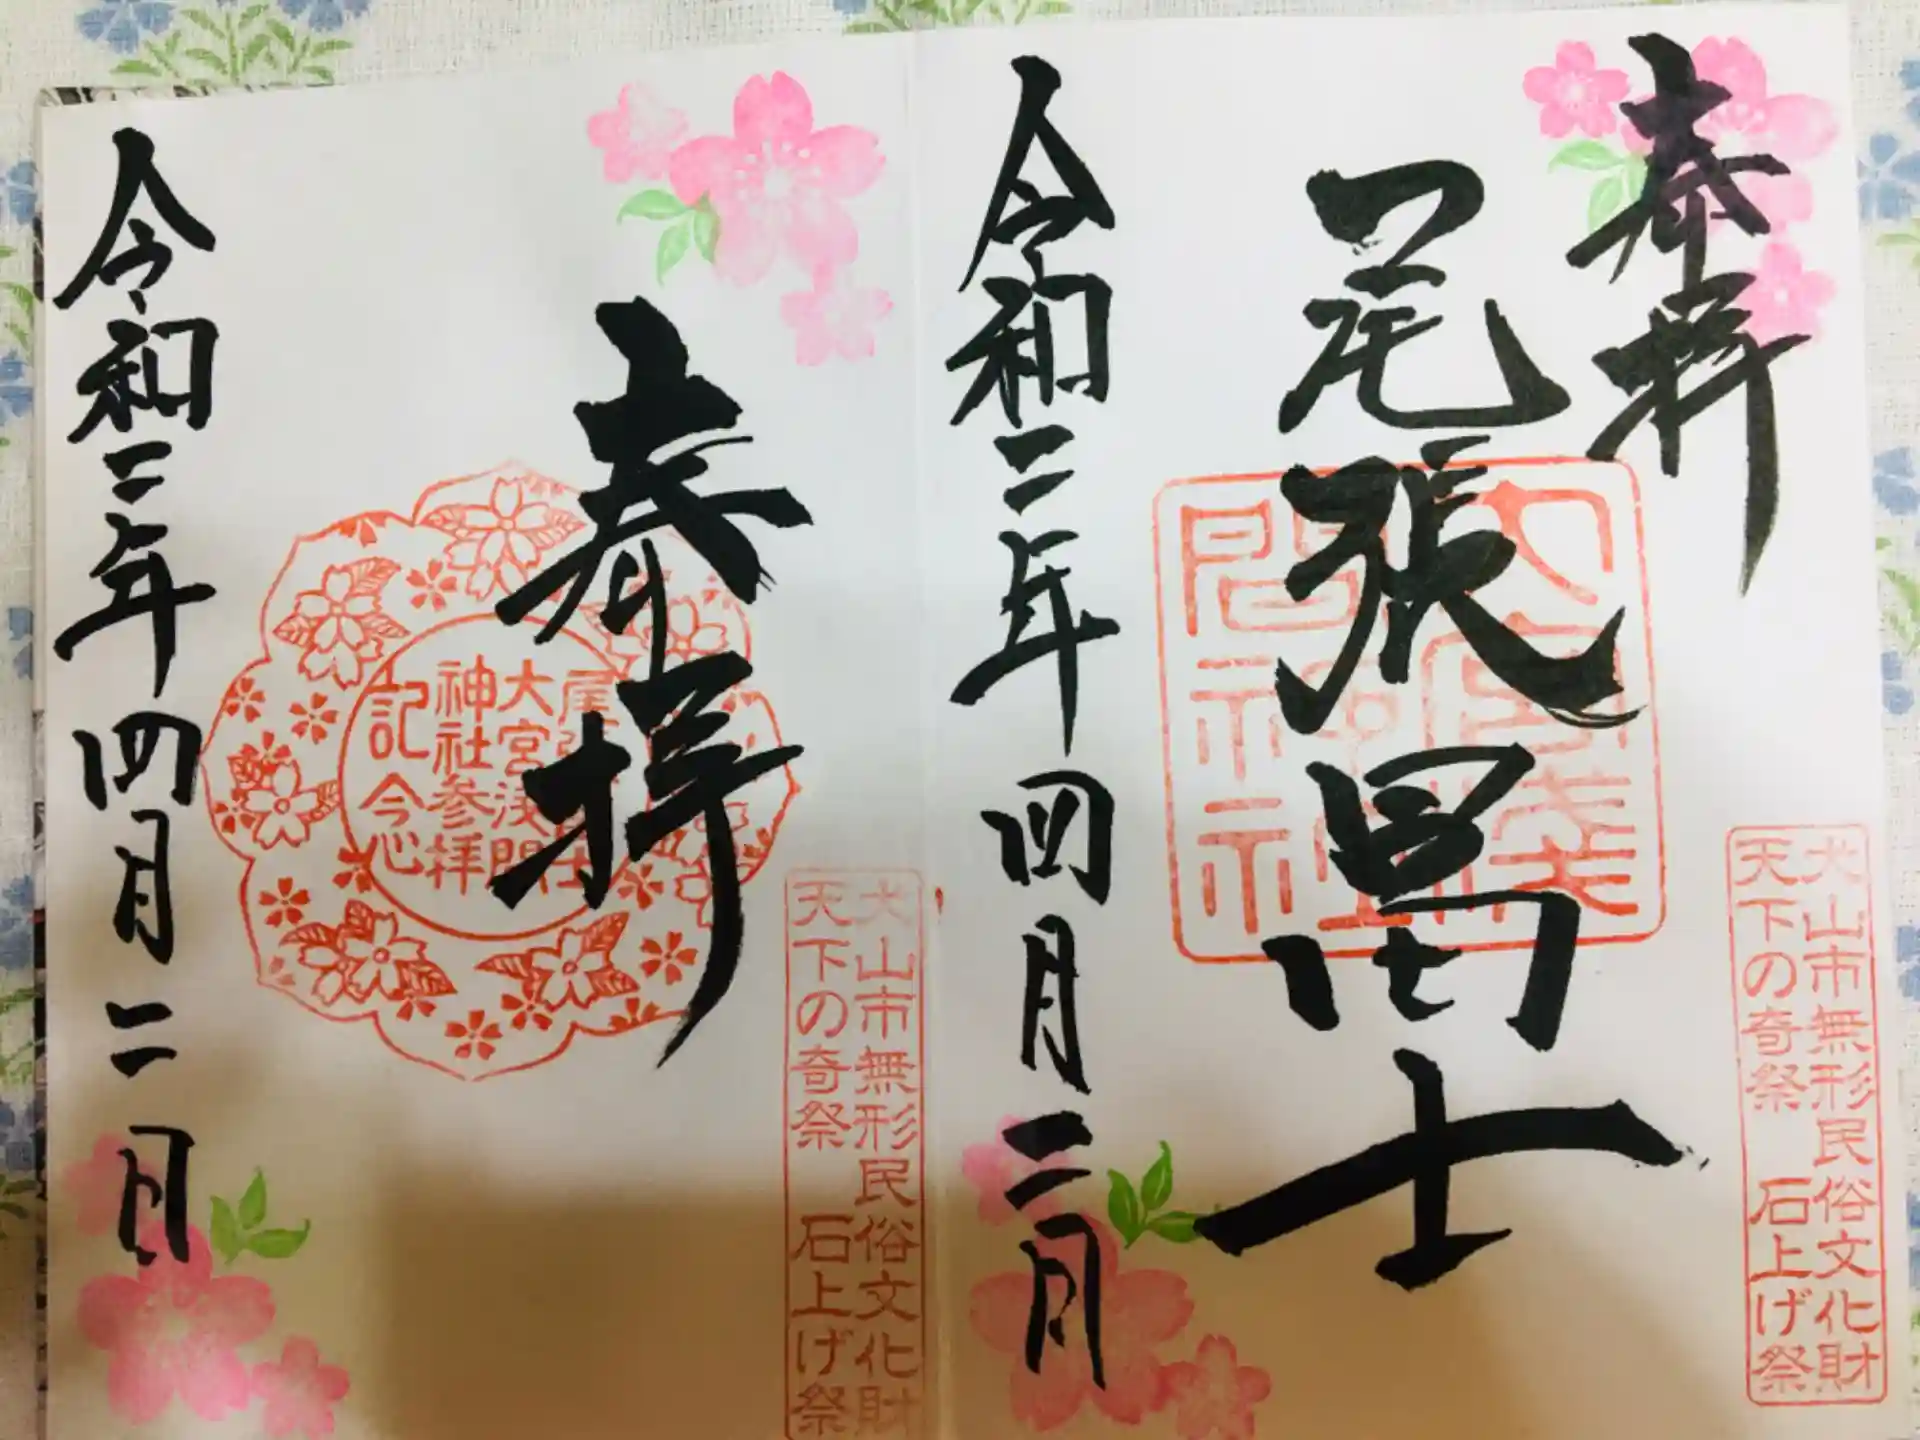 奉拝
尾張冨士
大宮浅
間神社
犬山市無形民俗文化財
天下の奇祭 石上げ祭
令和二年四月二日
奉拝
大宮浅間
神社参拝
記念
犬山市無形民俗文化財
天下の奇祭 石上げ祭
令和二年四月二日